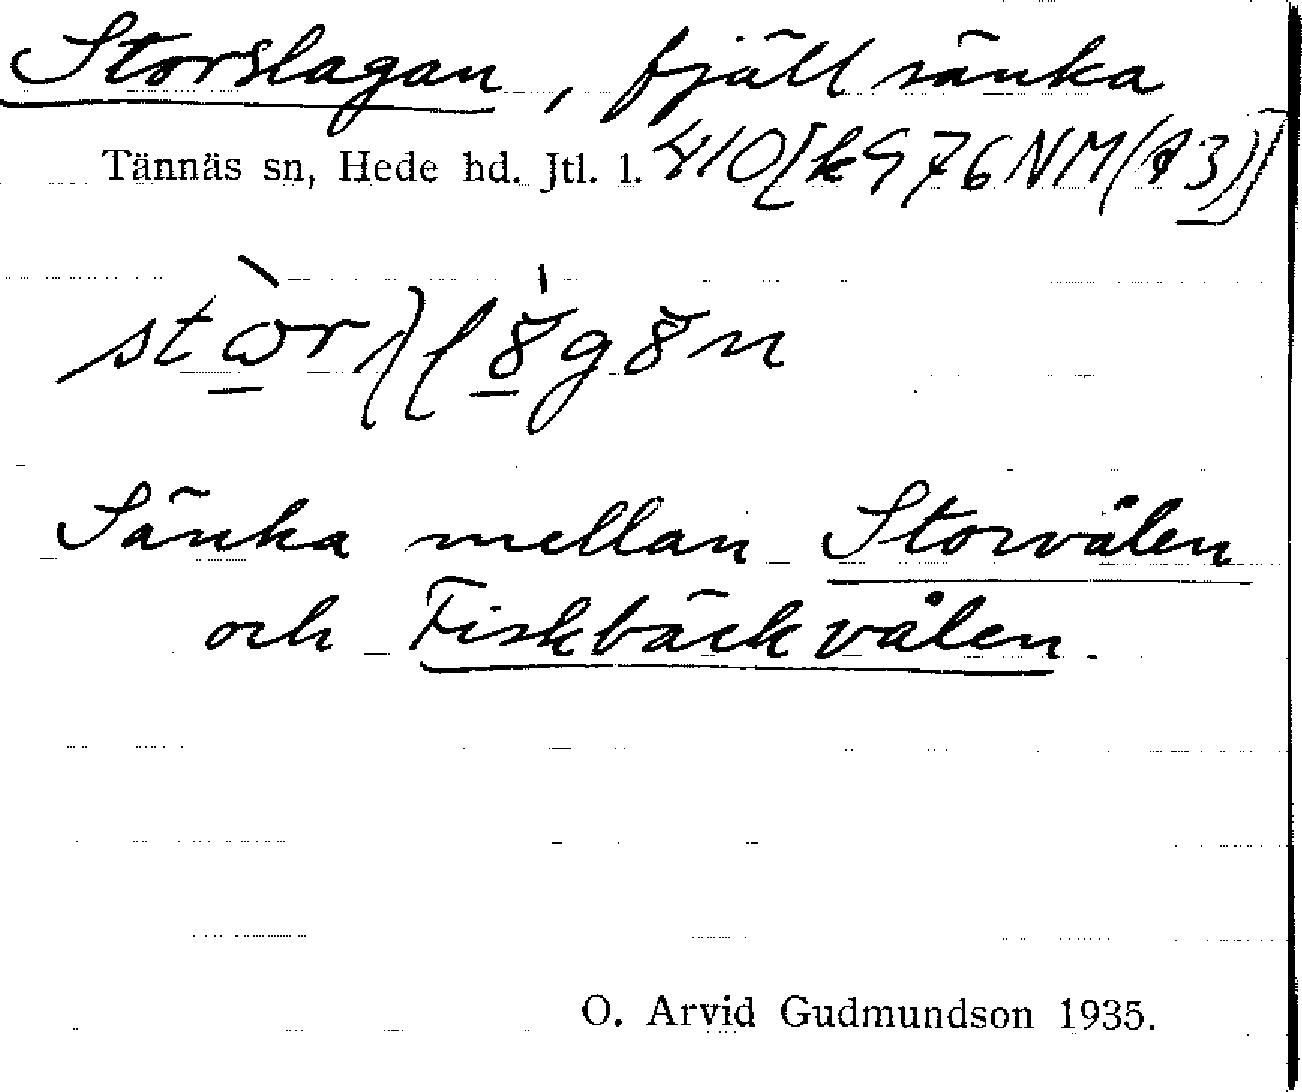 Storslagan, fjällsänka
Tännäs sn, Hede hd. Jtl. l.
Sänka mellan Storvålen
och Fiskbäckvålen.
O. Arvid Gudmundson 1935.